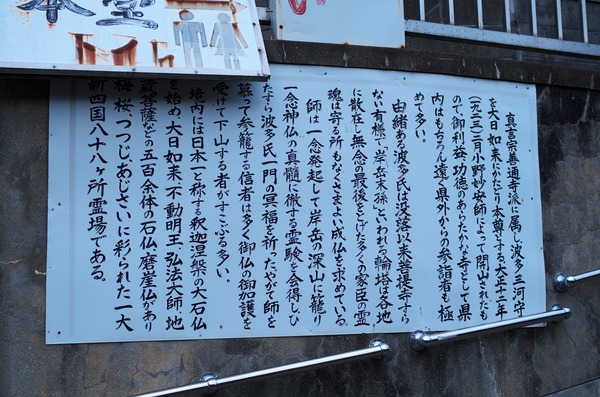 本堂
トイレ
真言宗善通寺派に属し波多三河守
を大日如来にかたどり本尊とする、大正十二年
(一九二三)二月小野妙安師によって開山されたも
ので御利益、功徳のあらたかな寺として県
内はもちろん遠く県外からの参詣者も極
めて多い。
由緒ある波多氏は没落以来菩提寺すら
ない有様で「岸岳末孫」といわれる輪塔は各地
に散在し無念の最後をとげた多くの家臣の霊
魂は寄る所もなくさまよい成仏を求めている。
師は一念発起して岸岳の深山に籠り
一念神仏の真髄に徹する霊験を会得し、ひ
たすら波多氏一門の冥福を祈ったゝめて師を
慕って参籠する信者は多く御仏の御加護を
受けて下山する者がすこぶる多い。
境内には日本一と称する釈迦涅槃の大石仏
を始め、大日如来、不動明王、弘法大師、地
蔵菩薩などの五百余体の石仏、磨崖仏があり
梅、桜、つつじ、あじさいに彩られた一大
新四国八十八ヶ所霊場である。